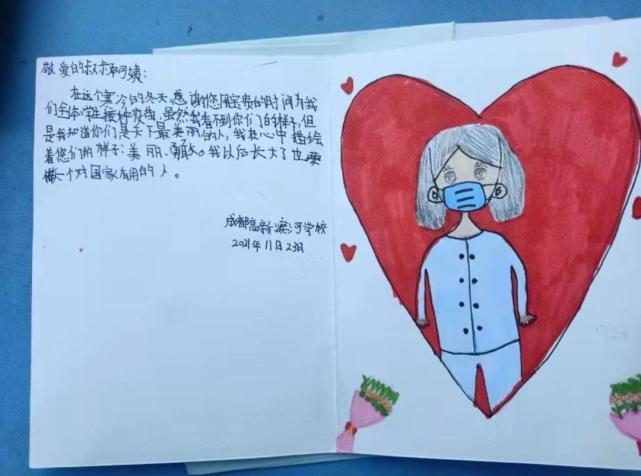 敬爱的叔叔阿姨：
在这个寒冷的冬天，感谢您用宝贵的时间为我
们全体学生接种疫苗，虽然我看不到你们的样子，但
是我知道你们是天下最美丽的人，我在心中描绘
着您们的样子：美丽、勇敢。我以后长大了也要
做一个对国家有用的人。
成都高新滨河学校
2021年11月23日